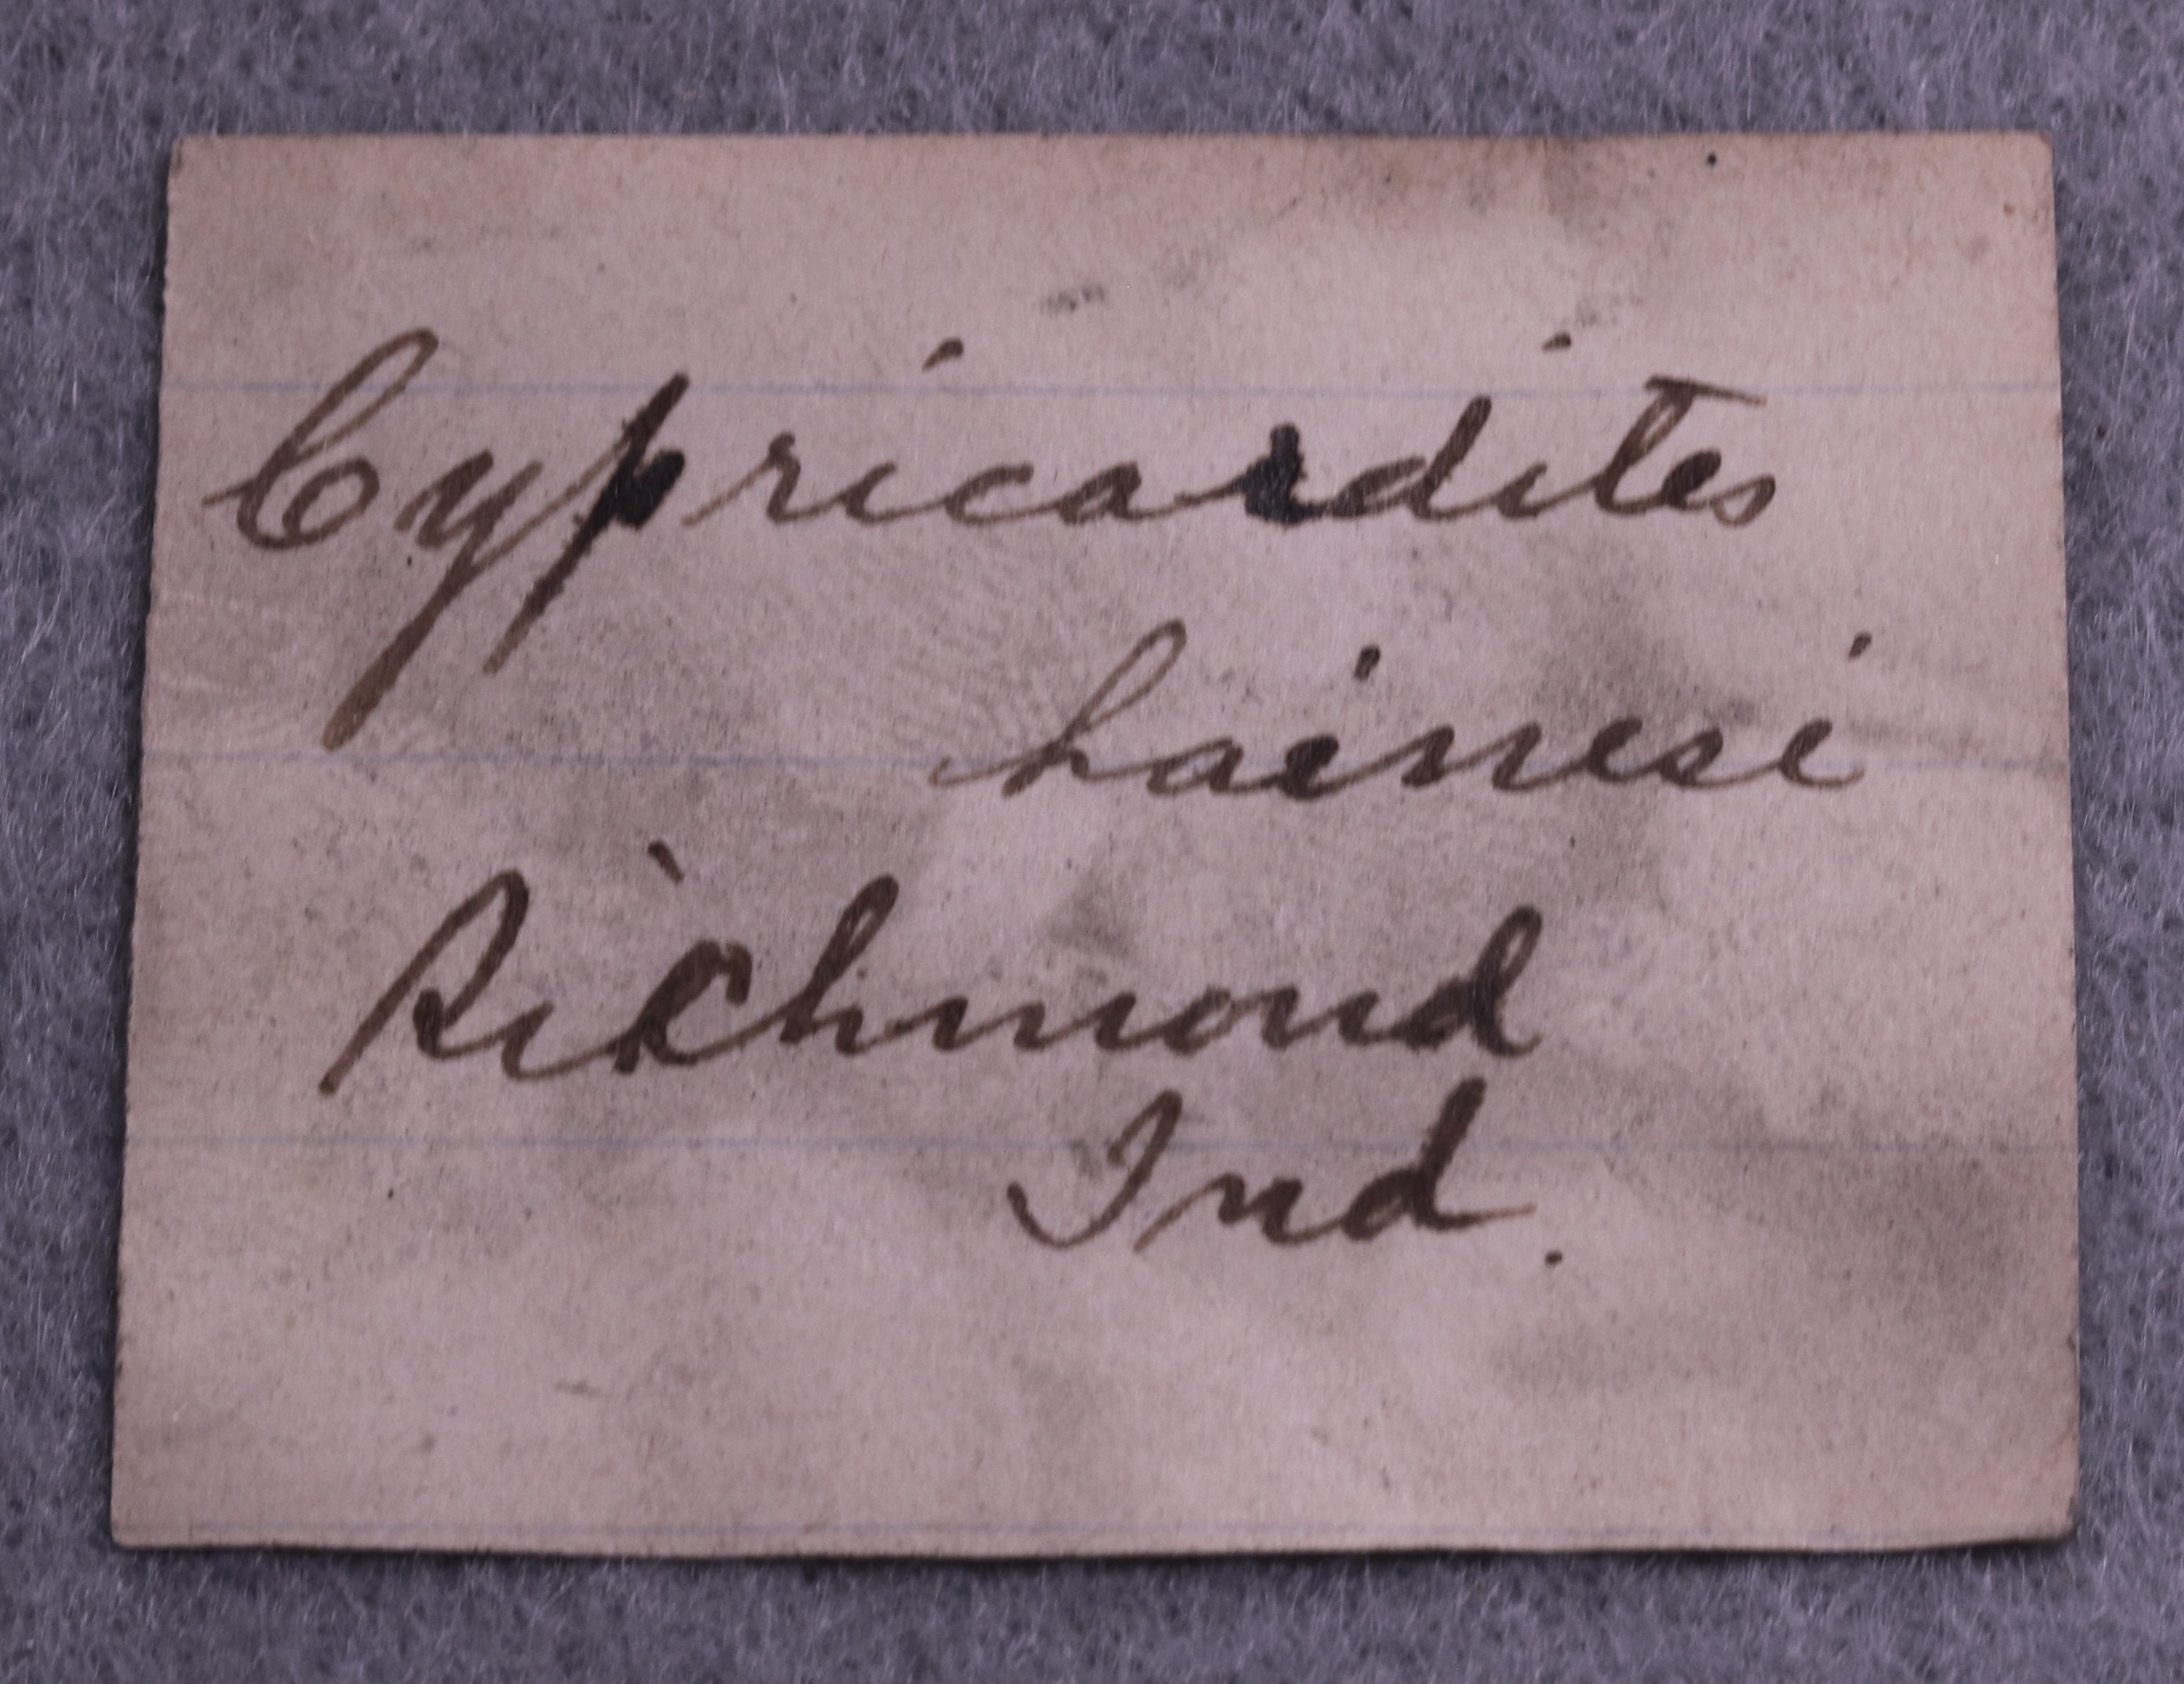 Cypricardites
hainesi
Richmond
Ind.